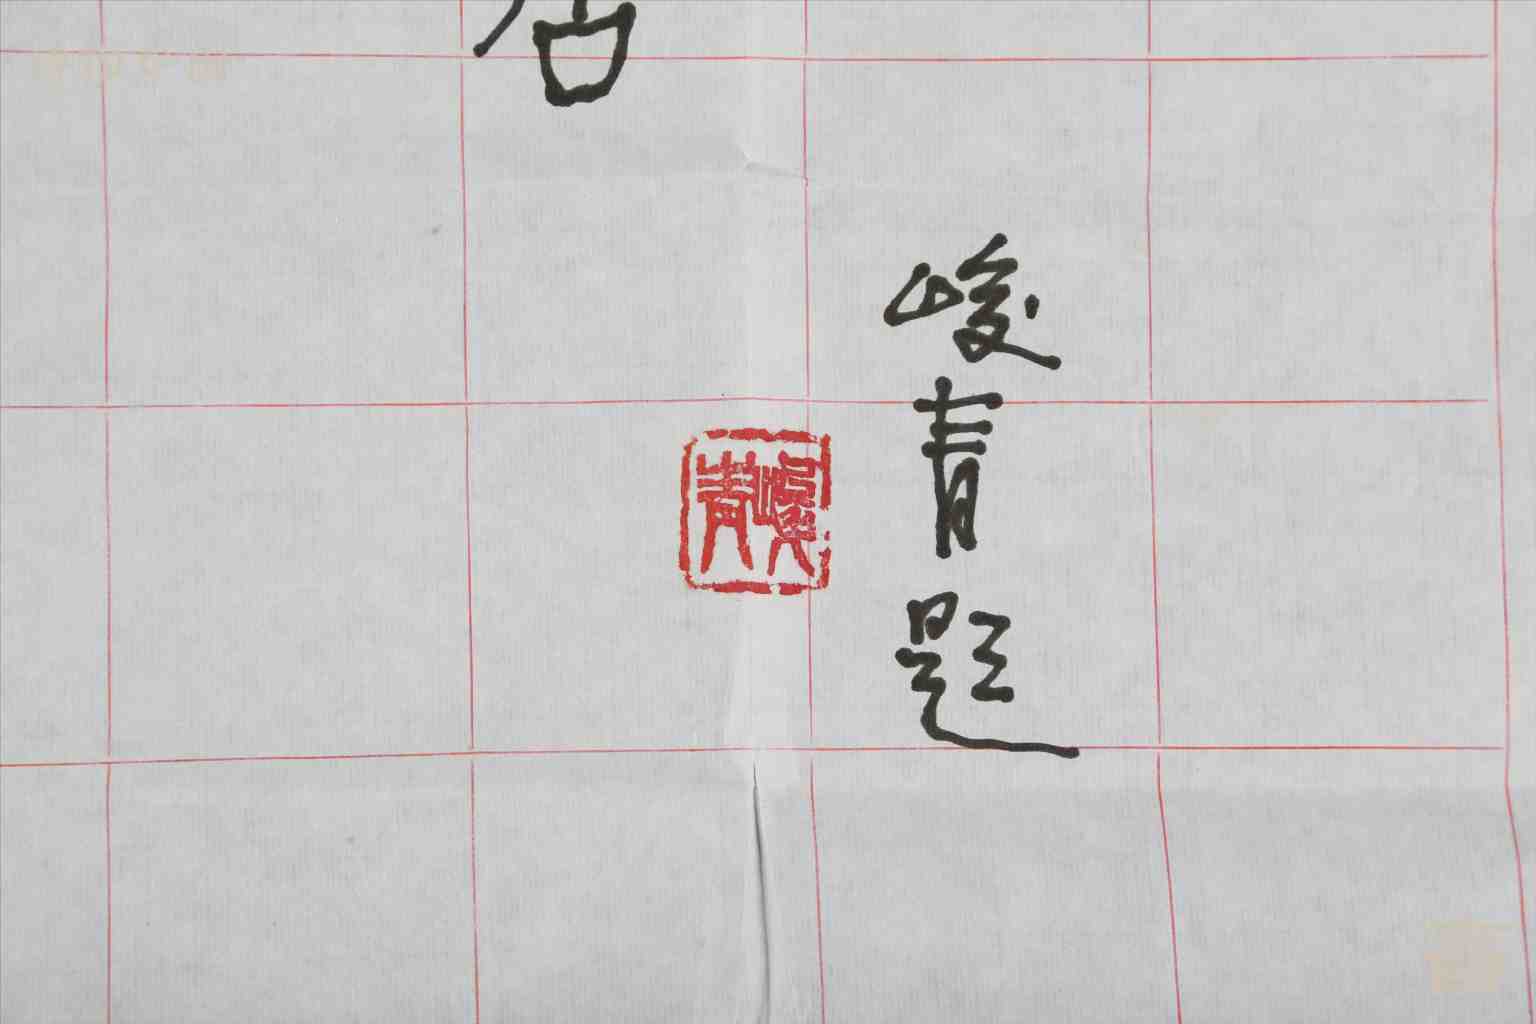 峻青题
峻青